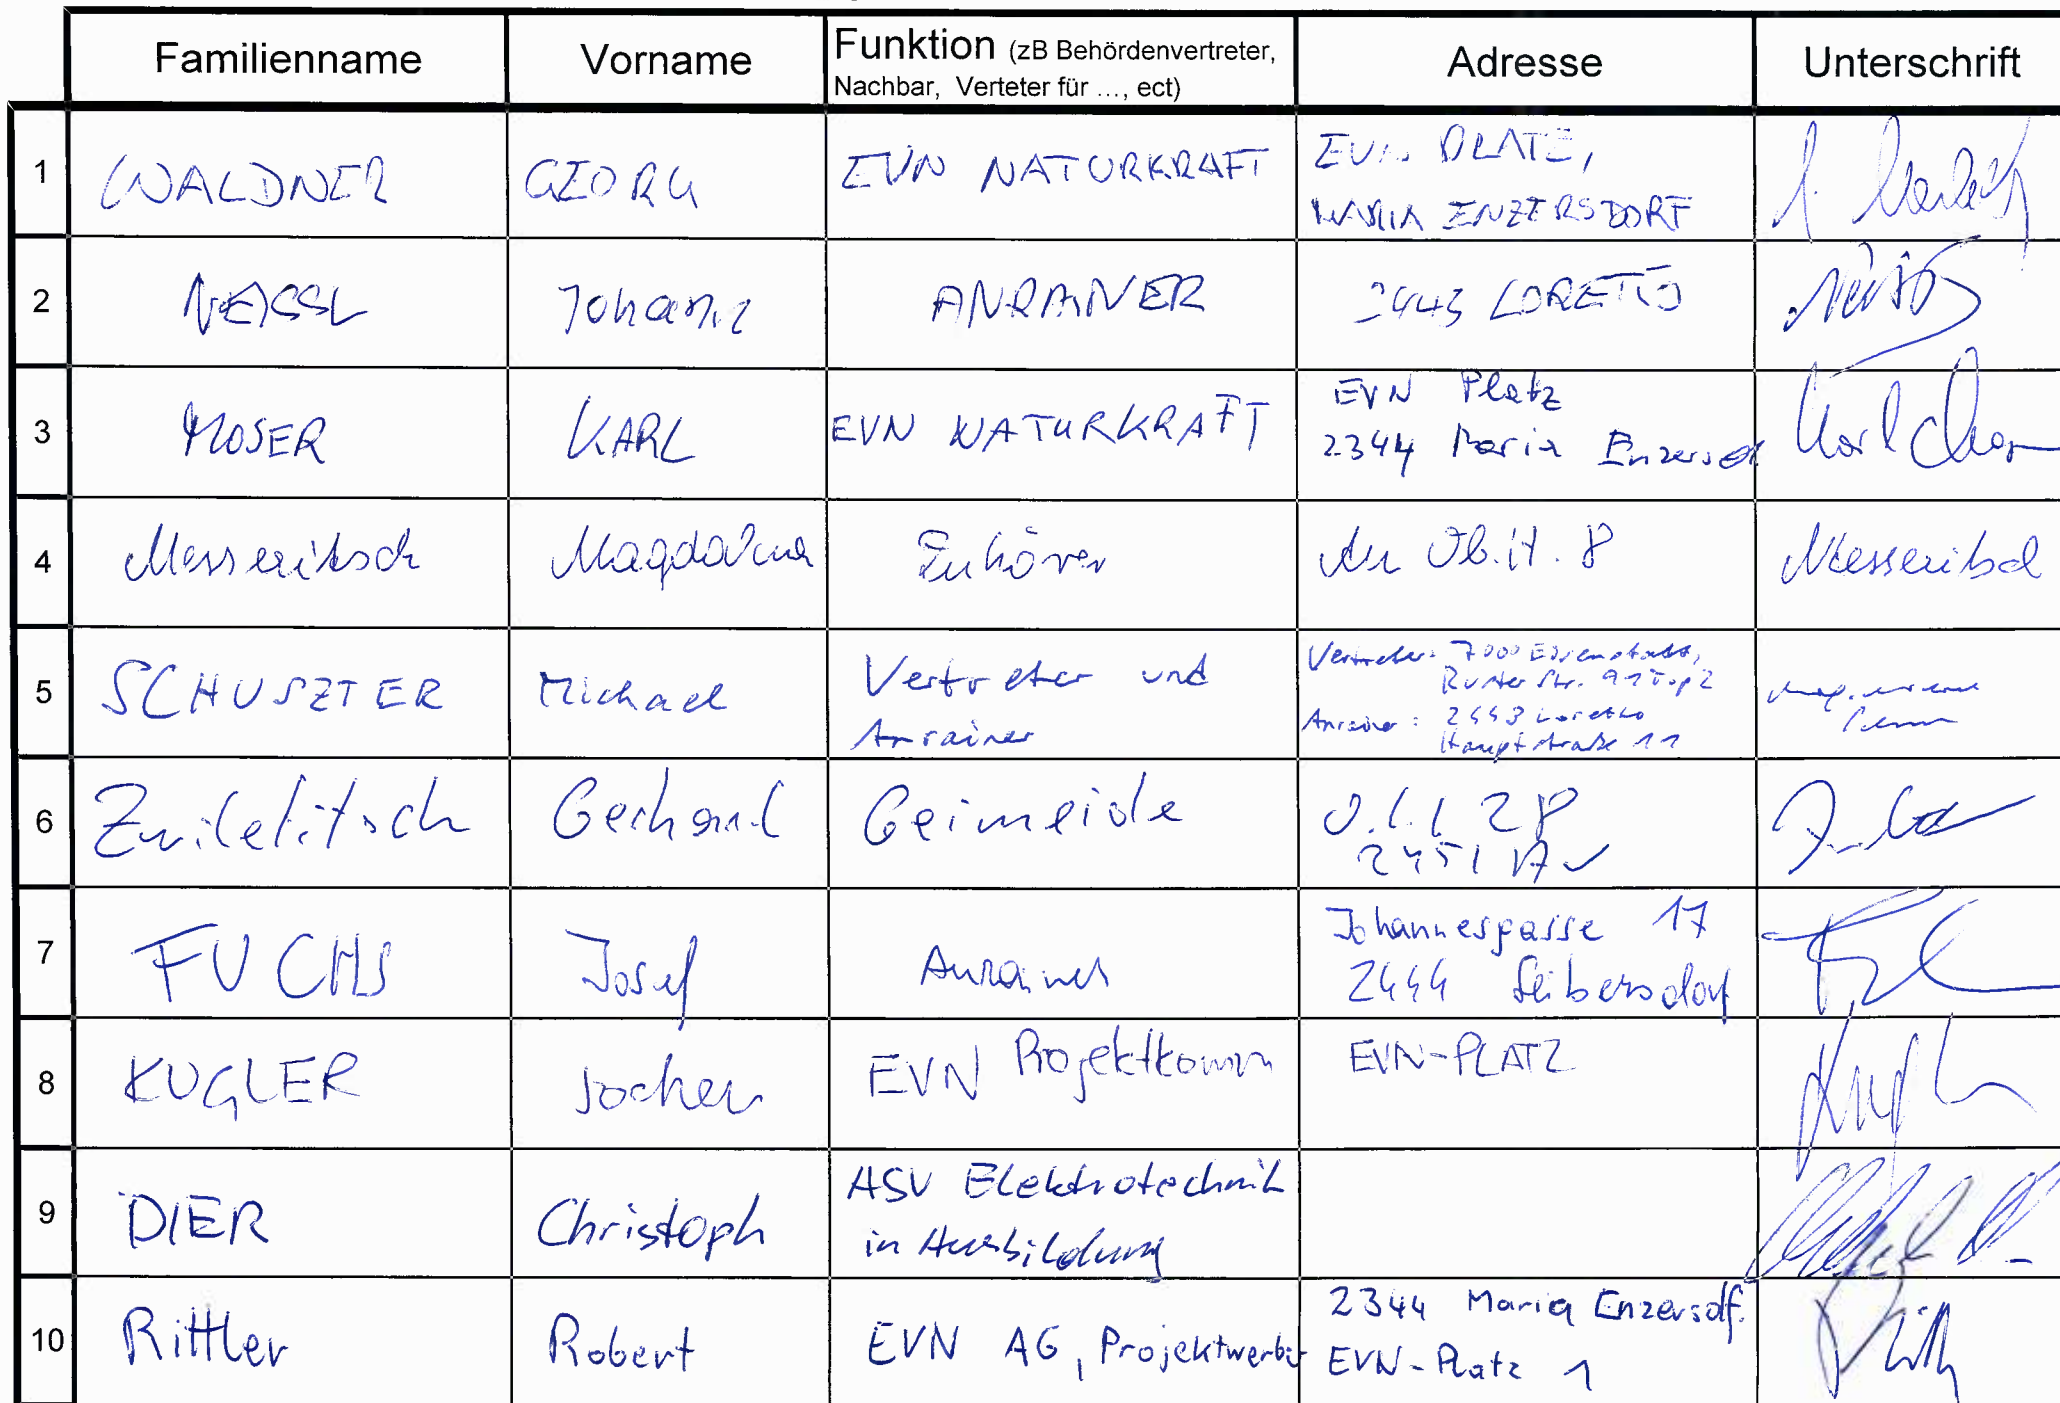 Familienname Vorname Funktion (zB Behördenvertreter, Nachbar, Verteter für ..., ect) Adresse Unterschrift
1 WALDNER GEORG EVN NATURKRAFT EVN PLATZ, MARIA ENZERSDORF
2 NEISSL Johann ANRAINER 2443 LORETTO
3 MOSER KARL EVN NATURKRAFT EVN Platz 2344 Maria Enzersd
4 Messeritsch Magdalena Zuhörer 8 Messeritsch
5 SCHUSZTER Michael Vertreter und Anrainer Vertreter: 7000 Eisenstadt, Ruster Str. 91 Top 2 Anrainer: 2443 Loretto Hauptstraße 11
6 Gerhard Gemeinde 28 2451
7 FUCHS Josef Anrainer Johannesgasse 17 2444 Seibersdorf
8 KUGLER Jochen EVN Projektkomm EVN-PLATZ
9 DIER Christoph ASV Elektrotechnik in Ausbildung
10 Rittler Robert EVN AG, Projektwerber 2344 Maria Enzersdf. EVN-Platz 1